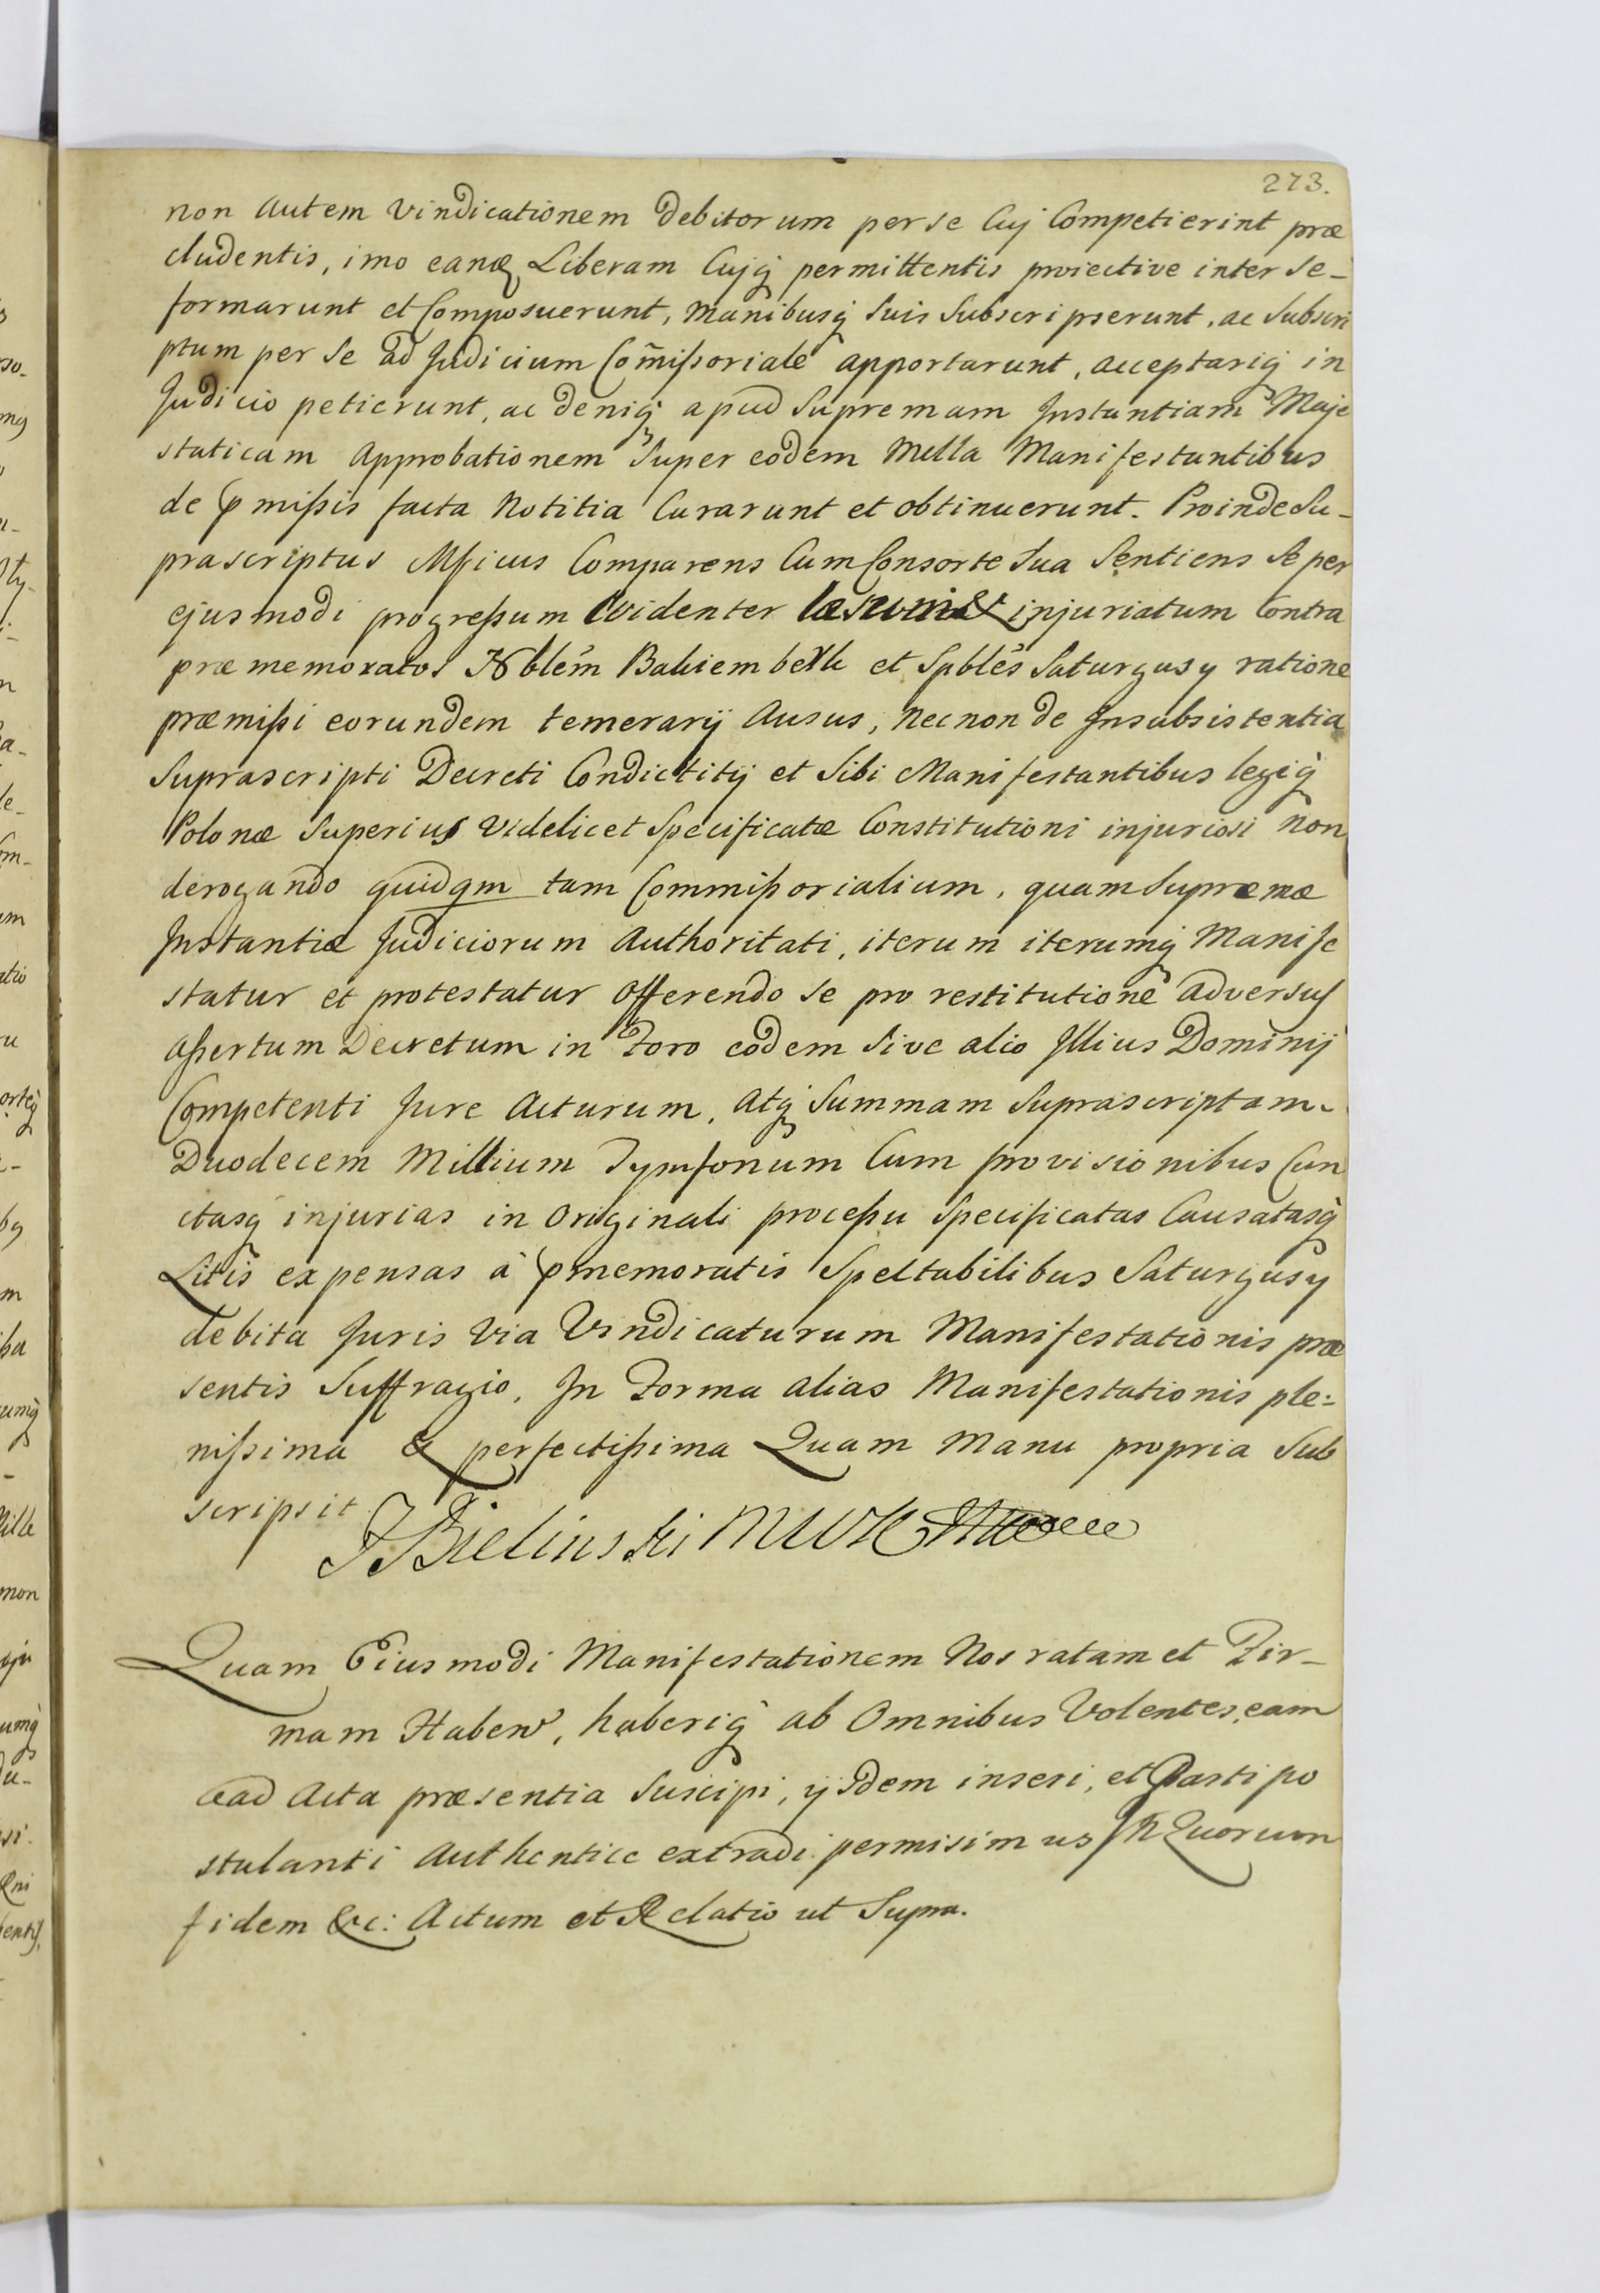 273.
non autem vindicationem debitorum per se Cuj Competierint præ
cludentis, imo eanq Liberam Cujq permittentis proiective inter se-
formarunt et Composuerunt, Manibusq suis Subscripserunt, ac subscri
ptum per se ad Judicium Com̃issoriale apportarunt, acceptariq in
Judicio petierunt, ac deniq apud Supremam Instantiam Maje
staticam Approbationem Super eodem Nulla Manifestantibus
de pmissis facta Notitia Curarunt et obtinuerunt. Proinde Su-
prascriptus Mficus Comparens Cum Consorte Sua Sentiens se per
ejusmodi progressum Evidenter læsum et injuriatum Contra
præmemoratos Nblem et Spbles Saturgusy ratione
præmissi eorundem temerarij Ausus, necnon de Insubsistentia
Suprascripti Decreti Condictitij et Sibi Manifestantibus legiq
Polonæ Superius Videlicet Specificatæ Constitutioni injuriosi non
derogando quidqm tam Commissorialium, quam Supremæ
Instantiæ Judiciorum Authoritati, iterum iterumq Manife
statur et protestatur offerendo se pro restitutione adversus
assertum Decretum in Foro eodem Sive alio Illius Dominij
Competenti Jure Acturum, atq Summam Suprascriptam
Duodecem Millium Tymfonum Cum provisionibus Cun
ctasq injurias in Originali processu Specificatas Causatasq
Litis expensas à pmemoratis Spectabilibus Saturgusy
debita Juris Via Vindicaturum Manifestationis præ
sentis Suffragio, In Forma alias Manifestationis ple:
nissima & perfectissima Quam Manu propria Sub
scripsit
J Bielinski MWK
Quam Eiusmodi Manifestationem Nos ratam et Fir-
mam Haben, haberiq ab Omnibus Volentes, eam
ad Acta præsentia Suscipi, ijsdem inseri, et Parti po
stulanti Authentice extradi permisimus In Quorum
fidem &c: Actum et Relatio ut Supra.